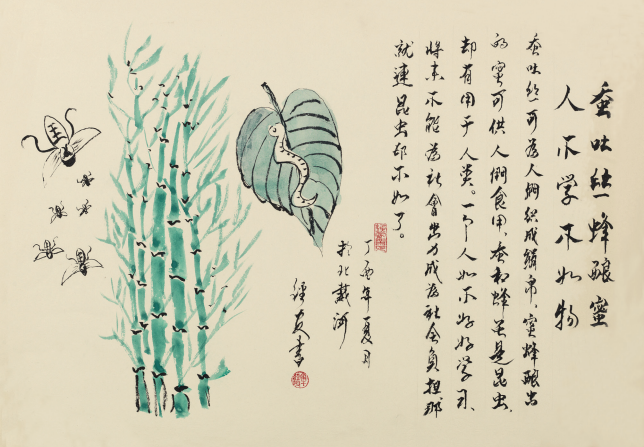 蚕吐丝蜂酿蜜
人不学不如物
蚕吐丝可为人们织成绸帛，蜜蜂酿出
的蜜可供人们食用，蚕和蜂虽是昆虫，
却有用于人类。一个人如不好好学习，
将来不能为社會出力成为社会负担那
就连昆虫却不如了。
丁酉年夏月
於北戴河
友書